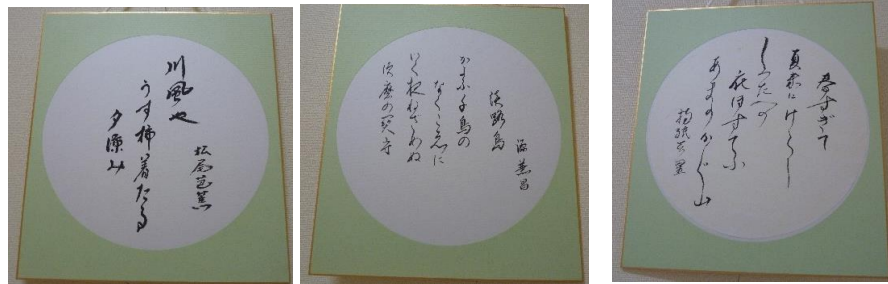 松尾芭蕉
川風や
うす柿着たる
夕涼み
源兼昌
淡路島
かよふ千鳥の
なくこゑに
いく夜ねざめぬ
須磨の関守
春すぎて
夏来にけらし
しろたへの
衣ほすてふ
あまのかぐ山
持統天皇